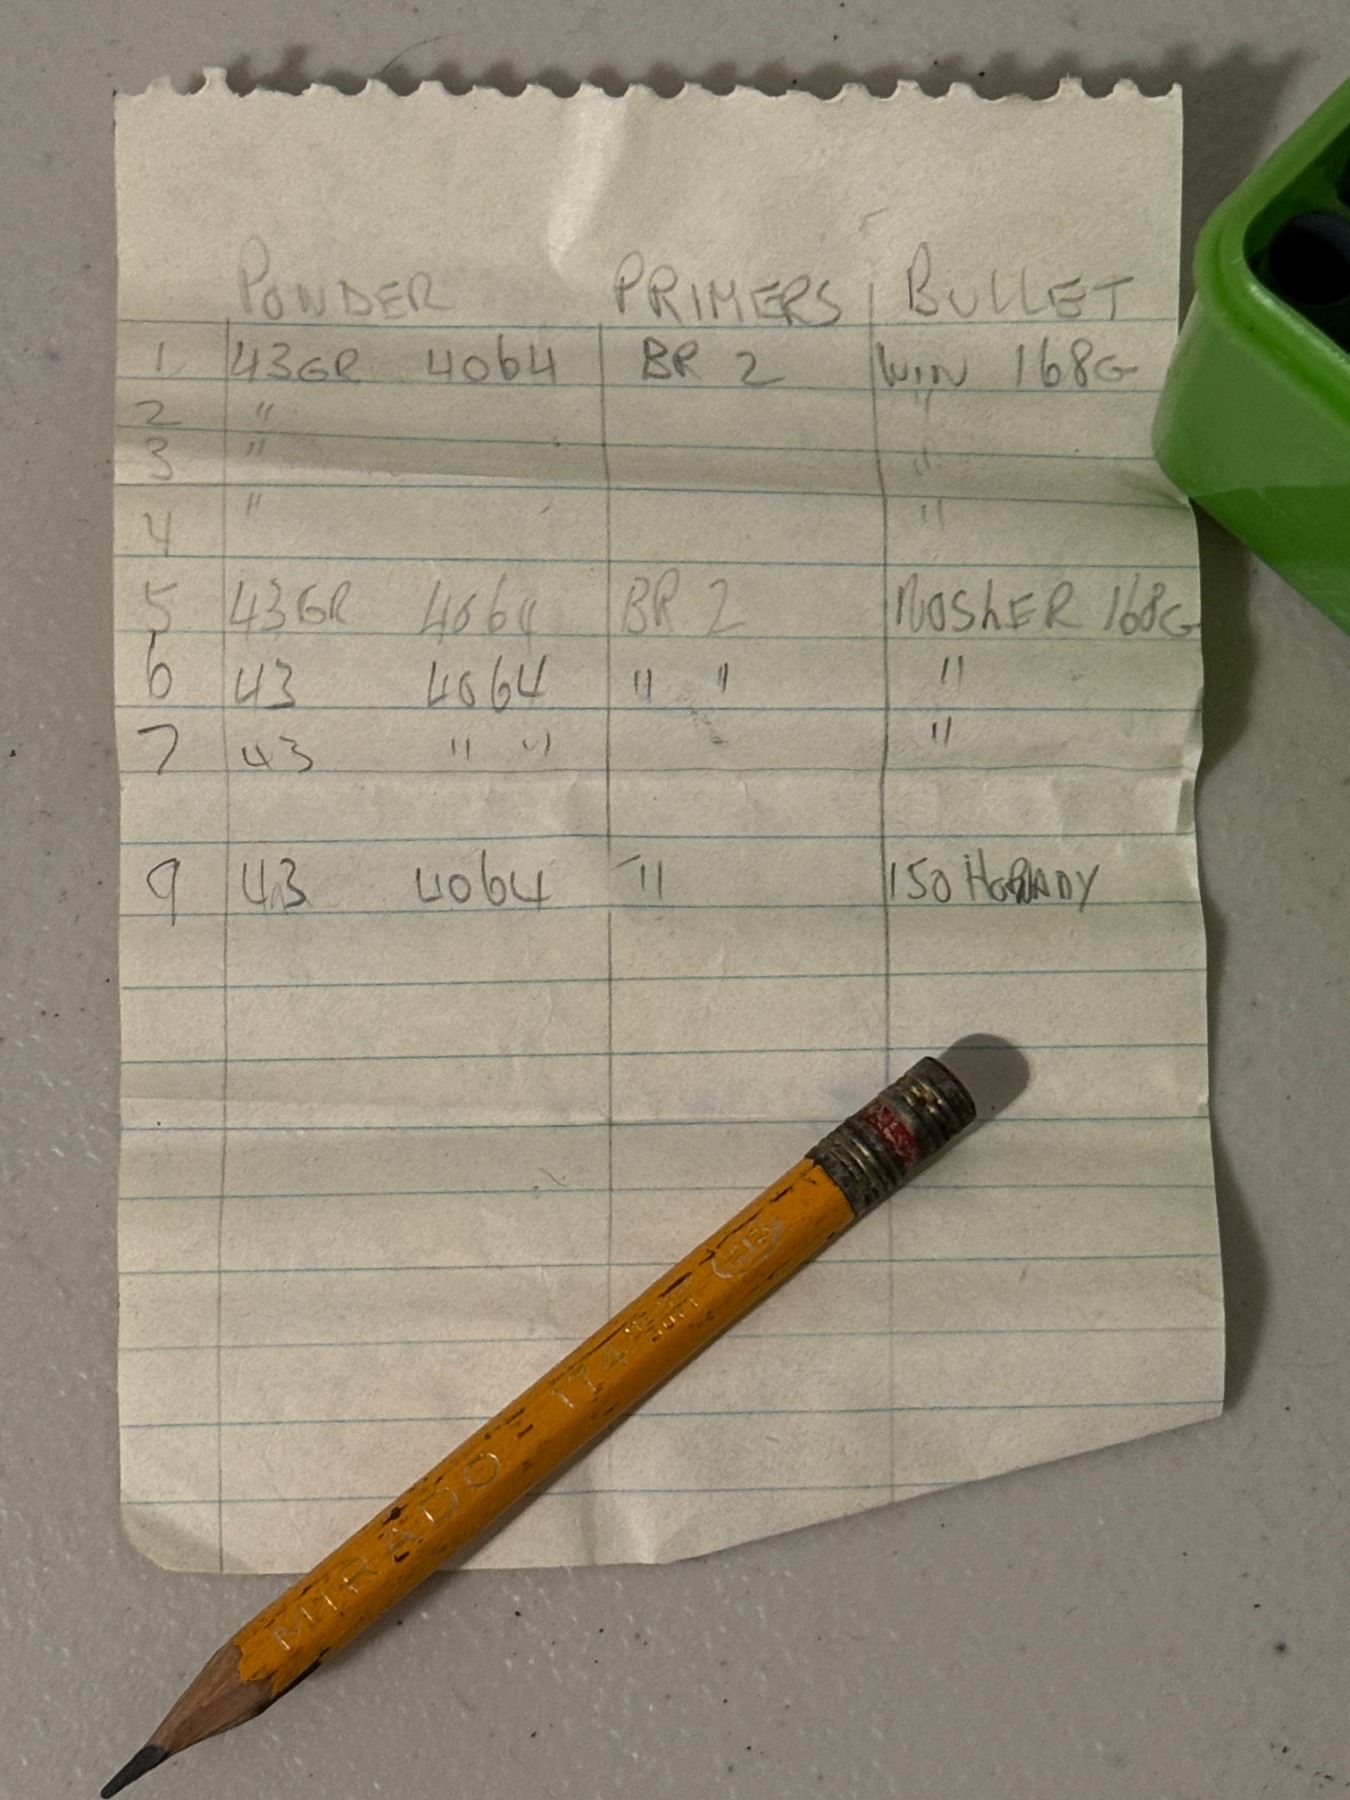 POWDER PRIMERS BULLET
1 43GR 4064 BR 2 WIN 168G
2 " "
3 " "
4 " "
5 43GR 4064 BR 2 NOSHER 168G
6 43 4064 " " "
7 43 " " "
9 43 4064 " 150 HORNADY
MIRADO 174